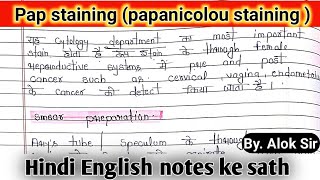 Pap staining (papanicolou staining )
यह Cytology department का most important
stain होता है इस stain के through female
reproductive systems में pre and post
cancer such as : cervical, vagina, endometrial
के cancer को detect किया जाता है।
smear preparation:-
Ayre's tube / Speculum के through
By. Alok Sir
Hindi English notes ke sath